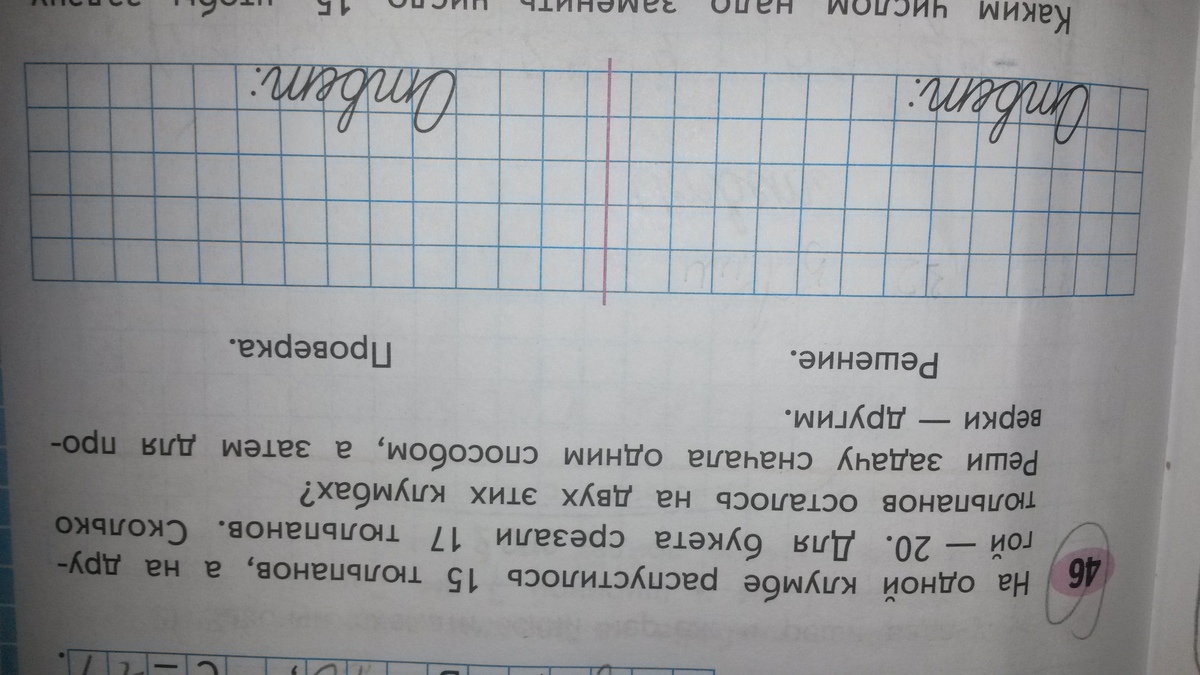 46
На одной клумбе распустилось 15 тюльпанов, а на дру-
гой — 20. Для букета срезали 17 тюльпанов. Сколько
тюльпанов осталось на двух этих клумбах?
Реши задачу сначала одним способом, а затем для про-
верки — другим.
Решение. Проверка.
Ответ: Ответ:
Каким числом надо заменить число 15, чтобы задачу